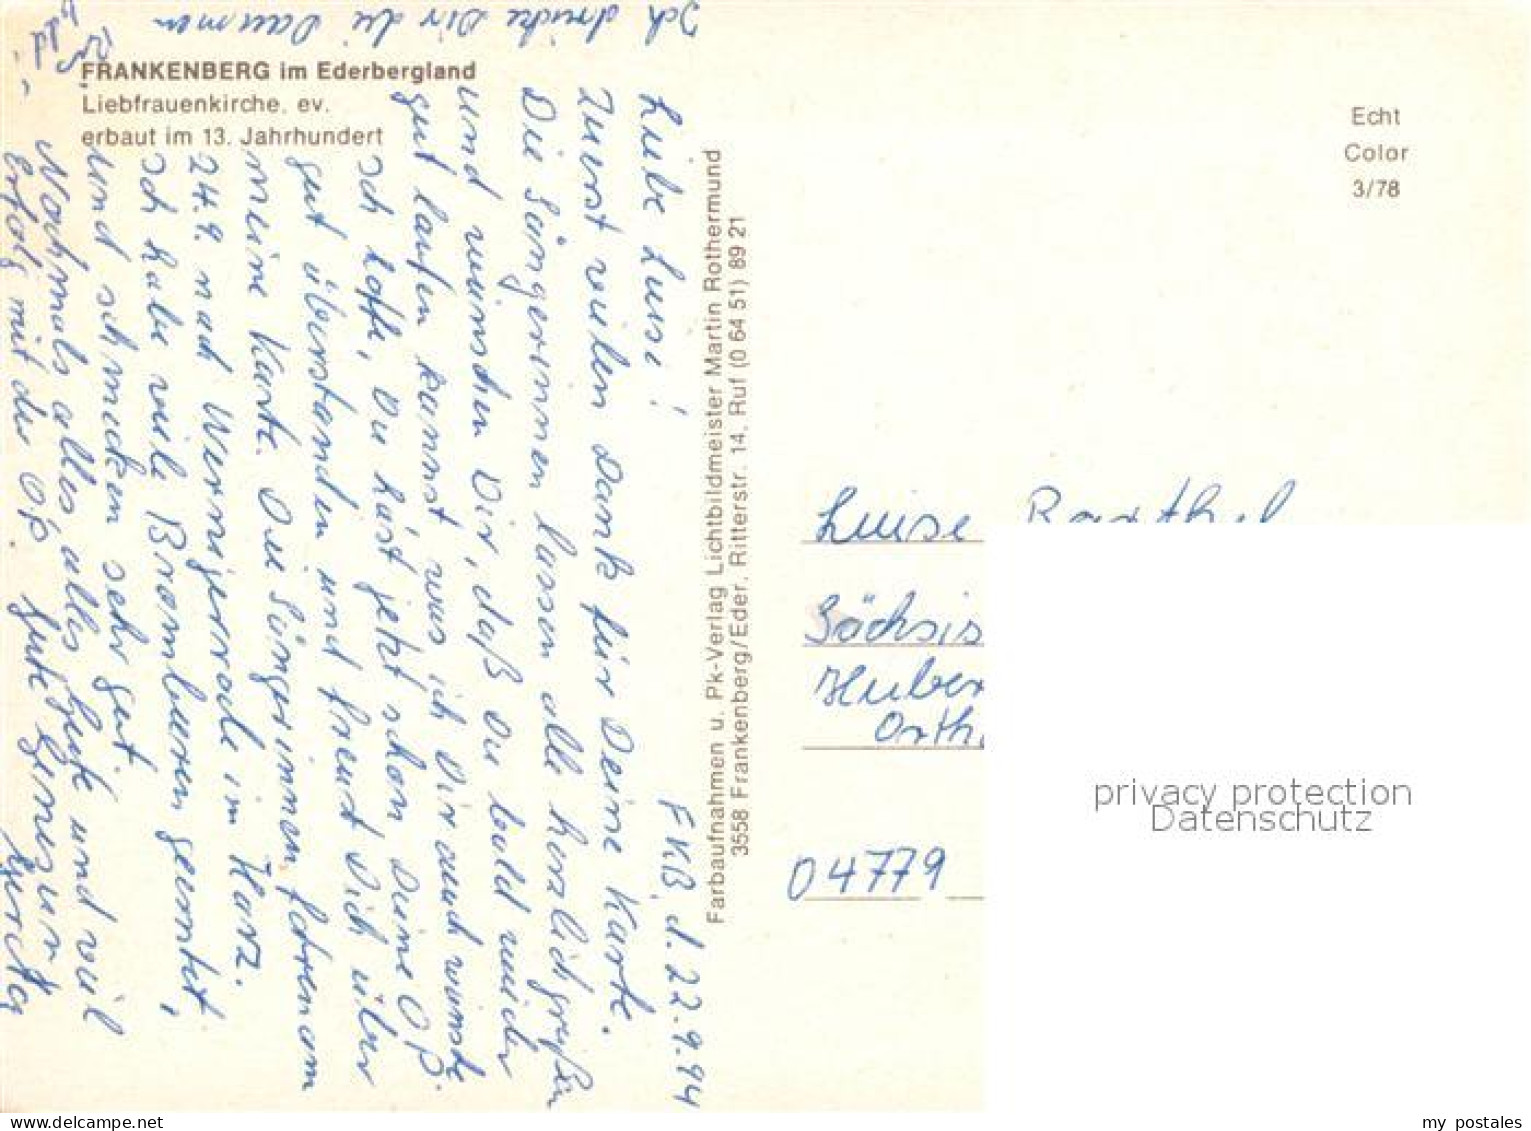 FRANKENBERG im Ederbergland
Liebfrauenkirche, ev.
erbaut im 13. Jahrhundert
Echt
Color
3/78
Farbaufnahmen u. Pk-Verlag Lichtbildmeister Martin Rothermund
3558 Frankenberg/Eder, Ritterstr. 14, Ruf (0 64 51) 89 21
FKB, d. 22.9.94
Liebe Luise!
Zuerst vielen Dank für Deine Karte.
Die Sängerinnen lassen alle herzlich grüßen
und wünschen Dir, daß Du bald wieder
gut laufen kannst was ich Dir auch wünsche
Ich hoffe, Du hast jetzt schon Deine Op.
gut überstanden und freust Dich über
meine Karte. Die Sängerinnen fahren am
24.9. nach Wernigerode im Harz.
Ich habe viele Brombeeren geerntet,
und schmecken sehr gut
Nochmals alles, alles Gute und viel
Erfolg mit der Op. Gute Genesung
Gerda
Ich drücke Dir die Daumen
Luise Barthel
Sächsis
Huber
Orth
04779
privacy protection
Datenschutz
www.delcampe.net
my_postales